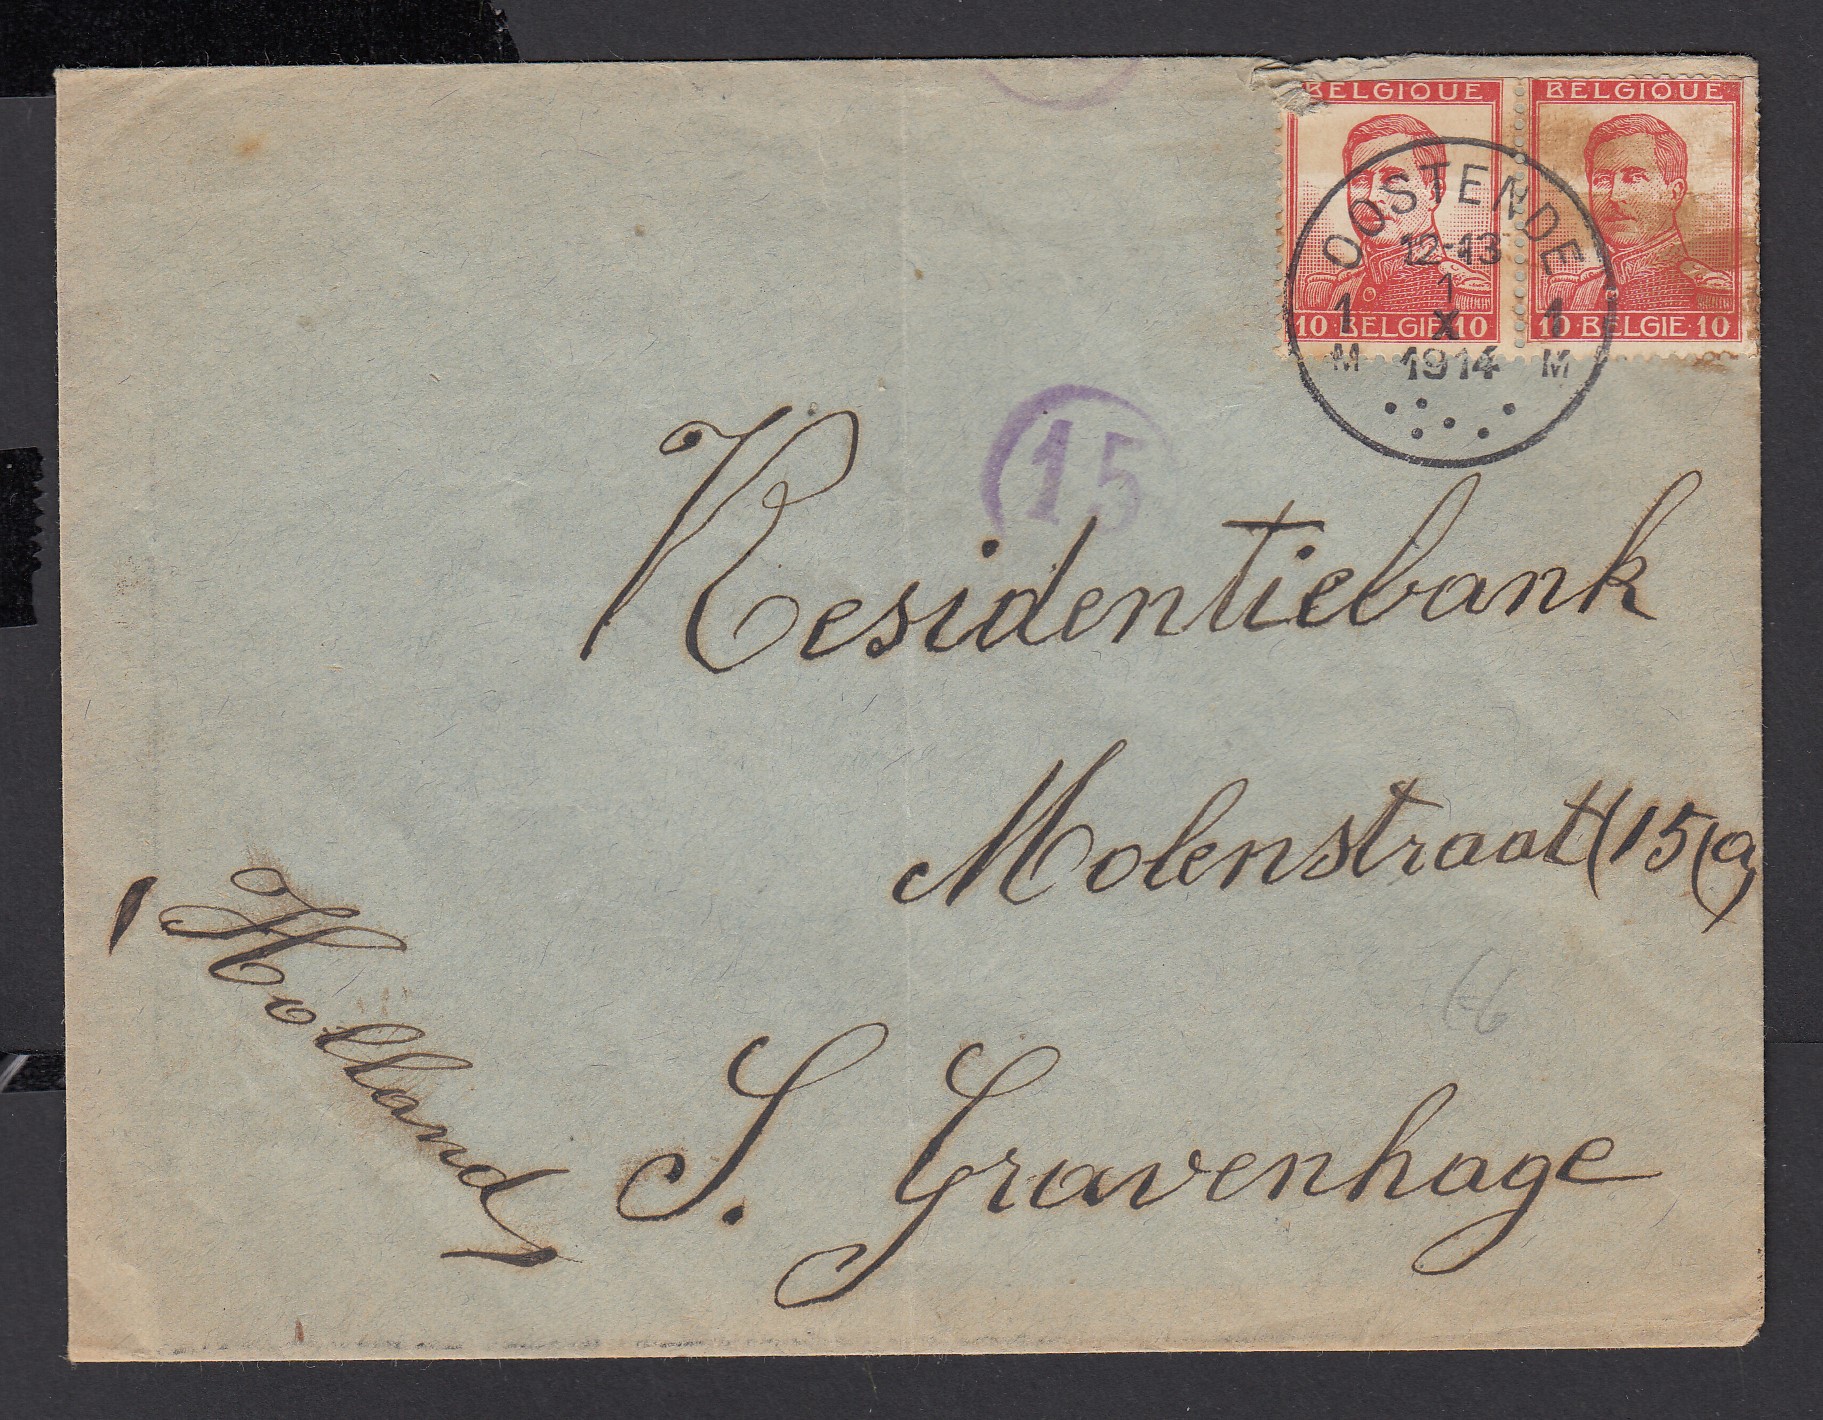 BELGIQUE BELGIQUE
10 BELGIE 10 10 BELGIE 10
OOSTENDE
12-13
1
1 X 1
M 1914 M
15
Residentiebank
Molenstraat (15(a)
S. Gravenhage
Holland